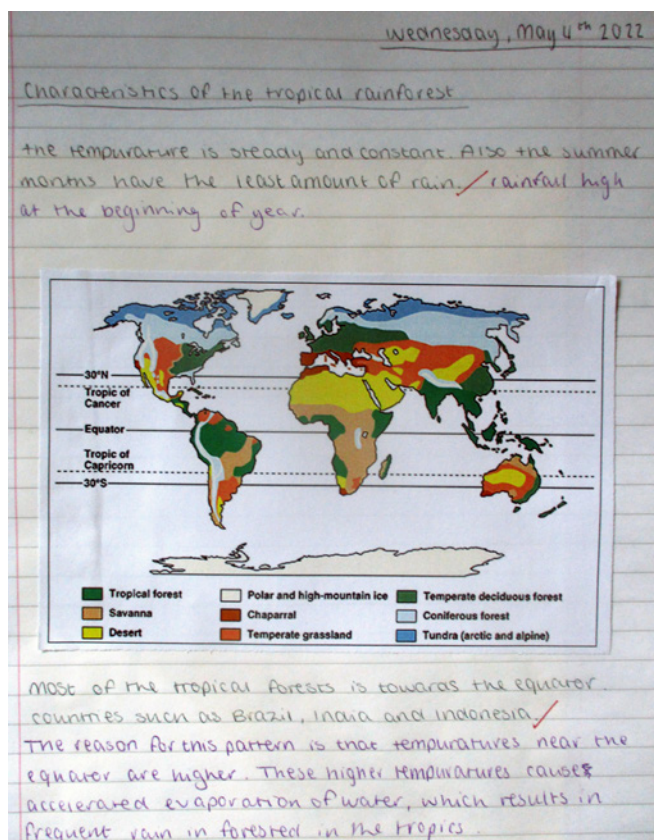 Wednesday, May 4th 2022
Characteristics of the tropical rainforest
the tempurature is steady and constant. Also the summer
months have the least amount of rain. / rainfall high
at the beginning of year.
30°N
Tropic of
Cancer
Equator
Tropic of
Capricorn
30°S
Tropical forest
Polar and high-mountain ice
Temperate deciduous forest
Savanna
Chaparral
Coniferous forest
Desert
Temperate grassland
Tundra (arctic and alpine)
Most of the tropical forests is towards the equator.
countries such as Brazil, India and Indonesia.
The reason for this pattern is that tempuratures near the
equator are higher. These higher tempuratures causes
accelerated evaporation of water, which results in
frequent rain in forested in the tropics.